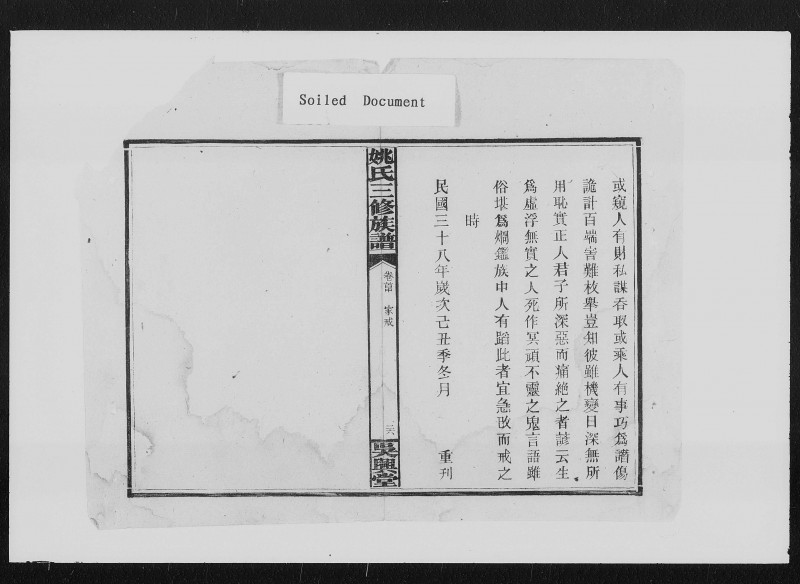 Soiled Document
或窺人有財私謀吞取或乘人有事巧為譖傷
詭計百端害難枚舉豈知彼雖機變日深無所
用恥實正人君子所深惡而痛絕之者諺云生
為虛浮無實之人死作冥頑不靈之鬼言語雖
俗堪為烱鑑族中人有蹈此者宜急改而戒之
時
民國三十八年歲次己丑季冬月 重刊
姚氏三修族譜
卷首 家戒
吳興堂